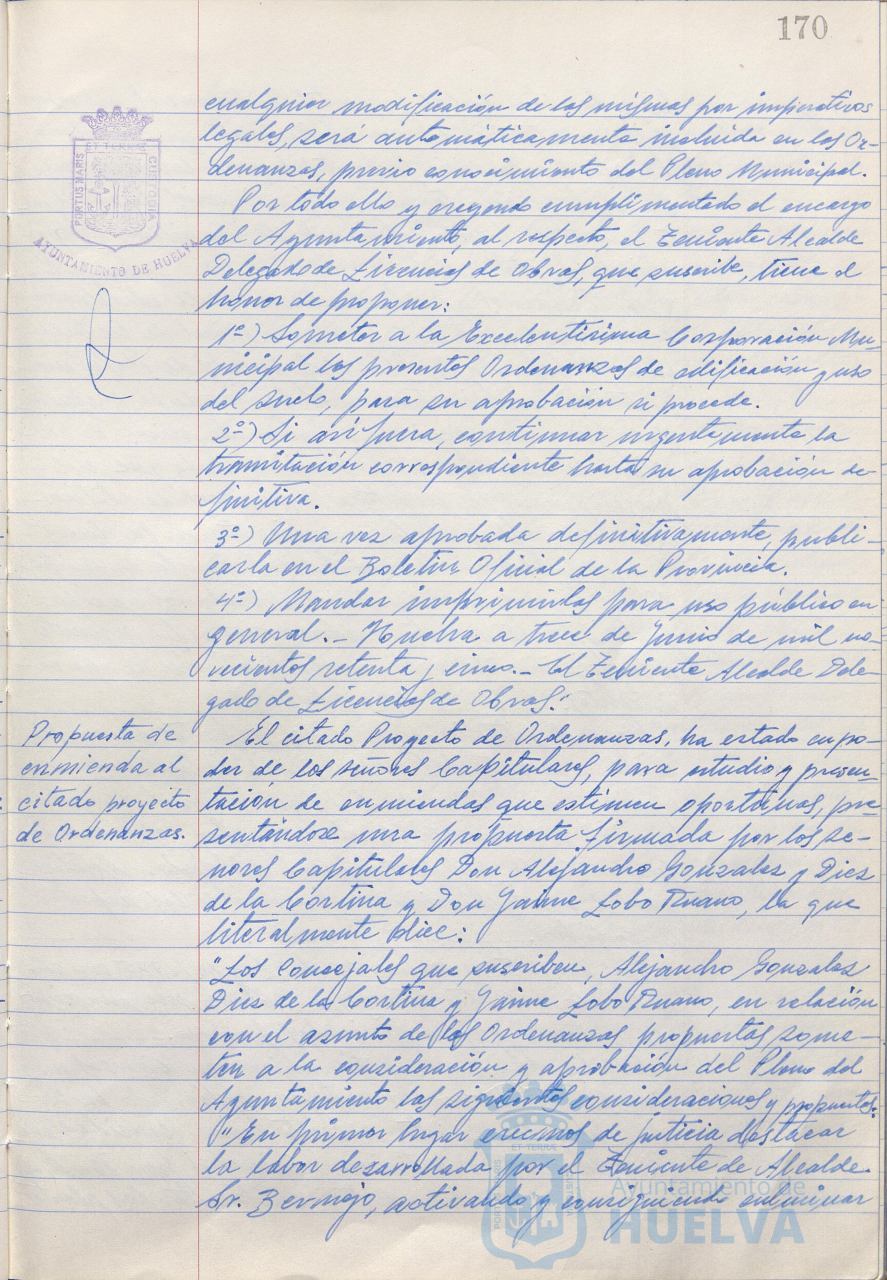 170
cualquier modificación de las mismas por imperativos
legales, será automáticamente incluida en las Or-
denanzas, previo conocimiento del Pleno Municipal.
Por todo ello y creyendo cumplimentado el encargo
del Ayuntamiento, al respecto, el Teniente Alcalde
Delegado de Licencias de Obras, que suscribe, tiene el
honor de proponer:
1º) Someter a la Excelentísima Corporación Mu-
nicipal las presentes Ordenanzas de edificación y uso
del suelo, para su aprobación si procede.
2º) Si así fuera, continuar urgentemente la
tramitación correspondiente hasta su aprobación de-
finitiva.
3º) Una vez aprobada definitivamente, publi-
carla en el Boletín Oficial de la Provincia.
4º) Mandar imprimirlas para uso público en
general.- Huelva a trece de Junio de mil no-
vecientos setenta y cinco.- El Teniente Alcalde Dele-
gado de Licencias de Obras."
Propuesta de
enmienda al
citado proyecto
de Ordenanzas.
El citado Proyecto de Ordenanzas, ha estado en po-
der de los señores Capitulares, para estudio y presen-
tación de enmiendas que estimen oportunas, pre-
sentándose una propuesta firmada por los se-
ñores Capitulares Don Alejandro Gonzalez y Diez
de la Cortina y Don Jaime Lobo Ruano, la que
literalmente dice:
"Los Concejales que suscriben, Alejandro Gonzalez
Diez de la Cortina y Jaime Lobo Ruano, en relación
con el asunto de las Ordenanzas propuestas some-
ten a la consideración y aprobación del Pleno del
Ayuntamiento las siguientes consideraciones y propuestas:
"En primer lugar creemos de justicia destacar
la labor desarrollada por el Teniente de Alcalde
Sr. Bermejo, activando y consiguiendo culminar
PORTUS MARIS
ET TERRE
CUSTODIA
AYUNTAMIENTO DE HUELVA
Ayuntamiento de
HUELVA